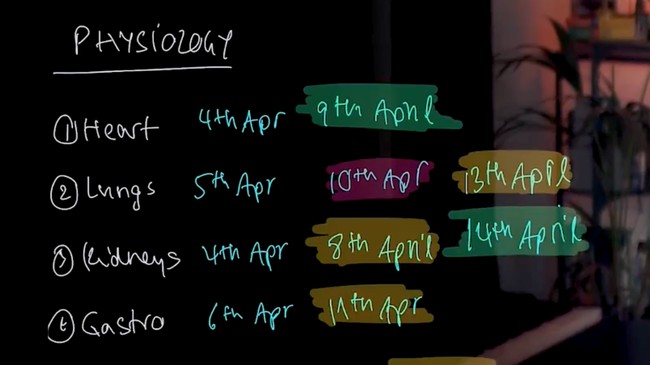 PHYSIOLOGY
① Heart 4th Apr 9th April
② Lungs 5th Apr 10th Apr 13th April
③ Kidneys 4th Apr 8th April 14th April
④ Gastro 6th Apr 11th Apr